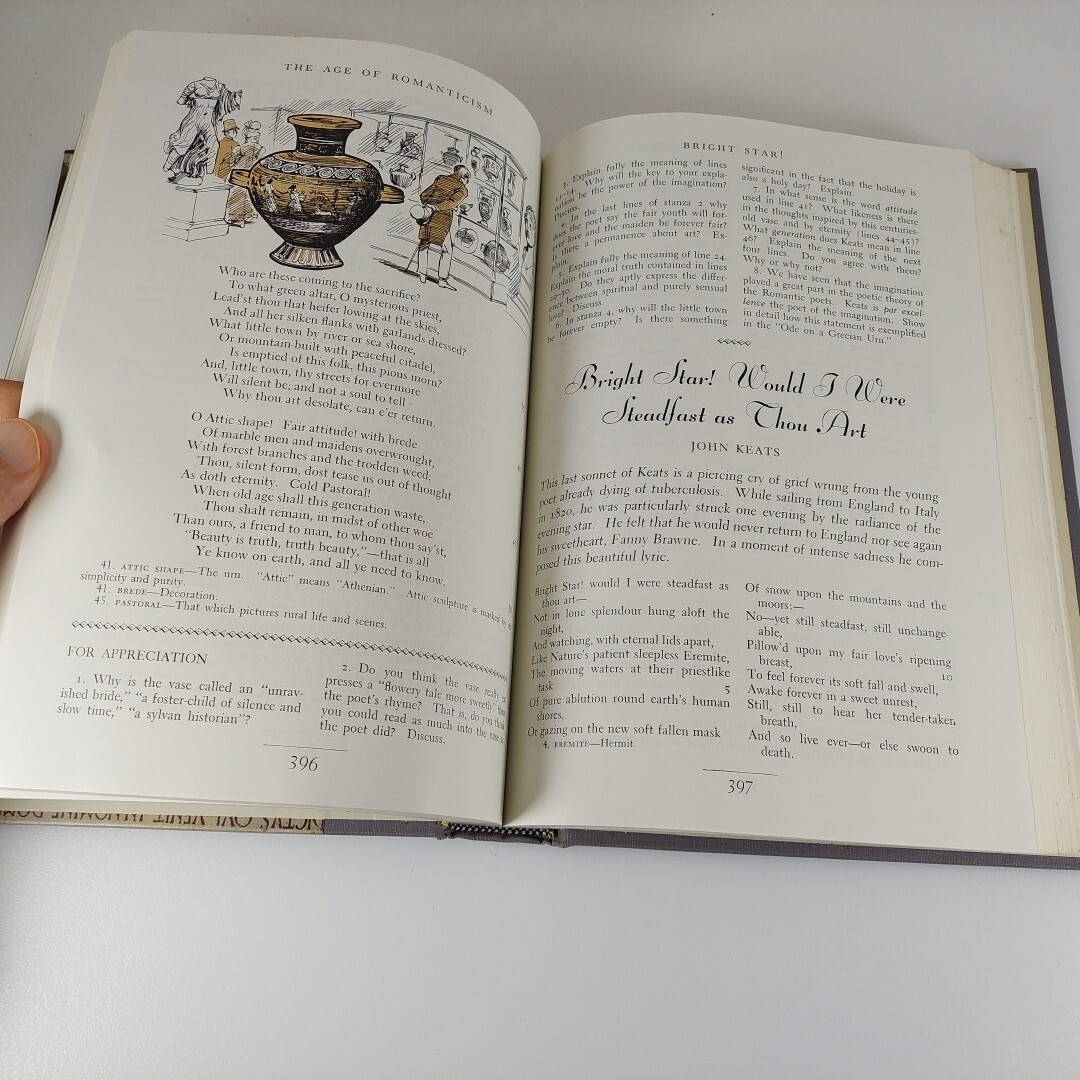 THE AGE OF ROMANTICISM
Who are these coming to the sacrifice?
To what green altar, O mysterious priest,
Lead'st thou that heifer lowing at the skies,
And all her silken flanks with garlands dressed?
What little town by river or sea shore,
Or mountain-built with peaceful citadel,
Is emptied of this folk, this pious morn?
And, little town, thy streets for evermore
Will silent be; and not a soul to tell
Why thou art desolate, can e'er return.
O Attic shape! Fair attitude! with brede
Of marble men and maidens overwrought,
With forest branches and the trodden weed;
Thou, silent form, dost tease us out of thought
As doth eternity. Cold Pastoral!
When old age shall this generation waste,
Thou shalt remain, in midst of other woe
Than ours, a friend to man, to whom thou say'st,
"Beauty is truth, truth beauty,"—that is all
Ye know on earth, and all ye need to know.
41. ATTIC SHAPE—The urn. "Attic" means "Athenian." Attic sculpture is marked by its
simplicity and purity.
41. BREDE—Decoration.
45. PASTORAL—That which pictures rural life and scenes.
FOR APPRECIATION
1. Why is the vase called an "unrav-
ished bride," "a foster-child of silence and
slow time," "a sylvan historian"?
2. Do you think the vase really
presses a "flowery tale more sweetly"
the poet's rhyme? That is, do you think
you could read as much into the vase as
the poet did? Discuss.
396
BRIGHT STAR!
3. Explain fully the meaning of lines
11–14. Why will the key to your expla-
nation be the power of the imagination?
Discuss.
4. In the last lines of stanza 2 why
does the poet say the fair youth will for-
ever love and the maiden be forever fair?
Is there a permanence about art? Ex-
plain.
5. Explain fully the meaning of line 24.
Explain the moral truth contained in lines
29–30. Do they aptly express the differ-
ence between spiritual and purely sensual
love? Discuss.
6. In stanza 4, why will the little town
be forever empty? Is there something
significant in the fact that the holiday is
also a holy day? Explain.
7. In what sense is the word attitude
used in line 41? What likeness is there
in the thoughts inspired by this centuries-
old vase and by eternity (lines 44–45)?
What generation does Keats mean in line
46? Explain the meaning of the next
four lines. Do you agree with them?
Why or why not?
8. We have seen that the imagination
played a great part in the poetic theory of
the Romantic poets. Keats is par excel-
lence the poet of the imagination. Show
in detail how this statement is exemplified
in the "Ode on a Grecian Urn."
Bright Star! Would I Were
Steadfast as Thou Art
JOHN KEATS
This last sonnet of Keats is a piercing cry of grief wrung from the young
poet already dying of tuberculosis. While sailing from England to Italy
in 1820, he was particularly struck one evening by the radiance of the
evening star. He felt that he would never return to England nor see again
his sweetheart, Fanny Brawne. In a moment of intense sadness he com-
posed this beautiful lyric.
Bright Star! would I were steadfast as
thou art—
Not in lone splendour hung aloft the
night,
And watching, with eternal lids apart,
Like Nature's patient sleepless Eremite,
The moving waters at their priestlike
task 5
Of pure ablution round earth's human
shores,
Or gazing on the new soft fallen mask
4. EREMITE—Hermit.
Of snow upon the mountains and the
moors:—
No—yet still steadfast, still unchange-
able,
Pillow'd upon my fair love's ripening
breast, 10
To feel forever its soft fall and swell,
Awake forever in a sweet unrest,
Still, still to hear her tender-taken
breath,
And so live ever—or else swoon to
death.
397
DICTVS QVI VENIT IN NOMINE DOMI